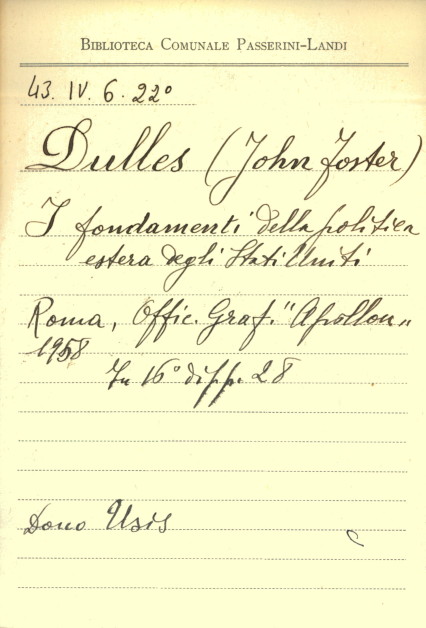 BIBLIOTECA COMUNALE PASSERINI-LANDI
43. IV. 6. 22º
Dulles (John Foster)
I fondamenti della politica
estera degli Stati Uniti
Roma, Offic. Graf. "Apollon"
1958
In 16º di pp. 28
Dono Usis
C